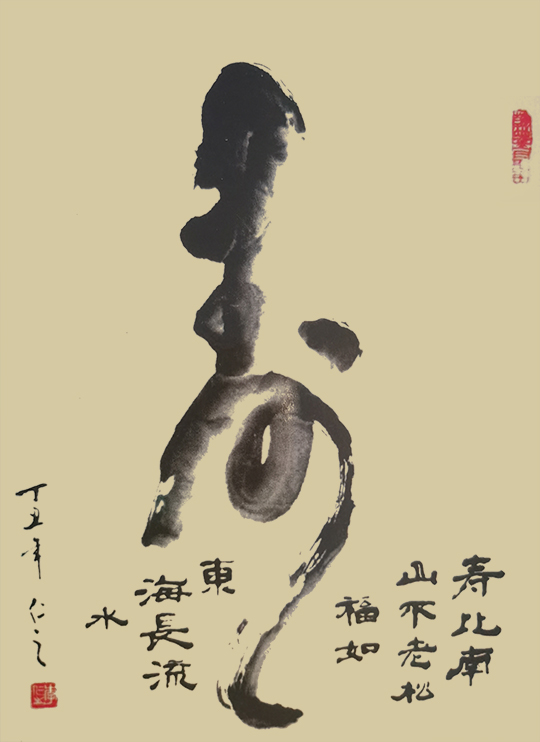 寿
寿比南
山不老松
福如
東
海長流
水
丁丑年